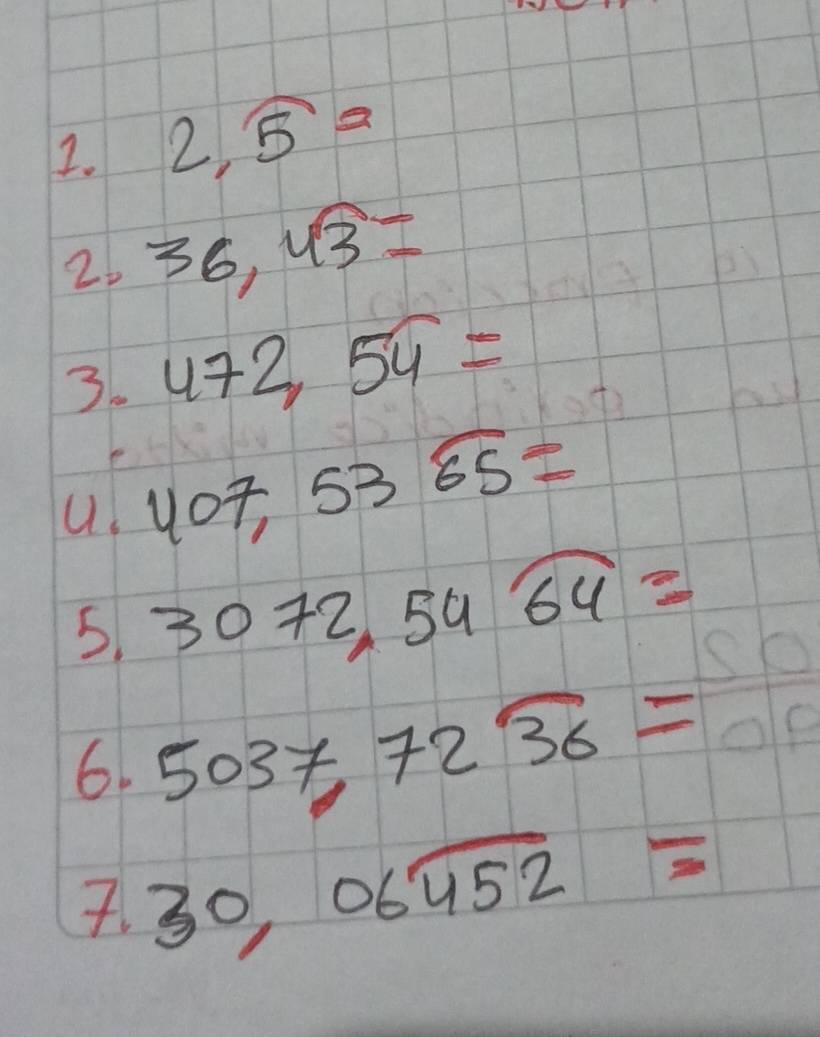 1. 2,5̑ =
2. 36,43̑ =
3. 472,54̑ =
4. 407,536͡5 =
5. 3072,546͡4 =
6. 5037,723͡6 =
7. 30,064͡5͡2 =